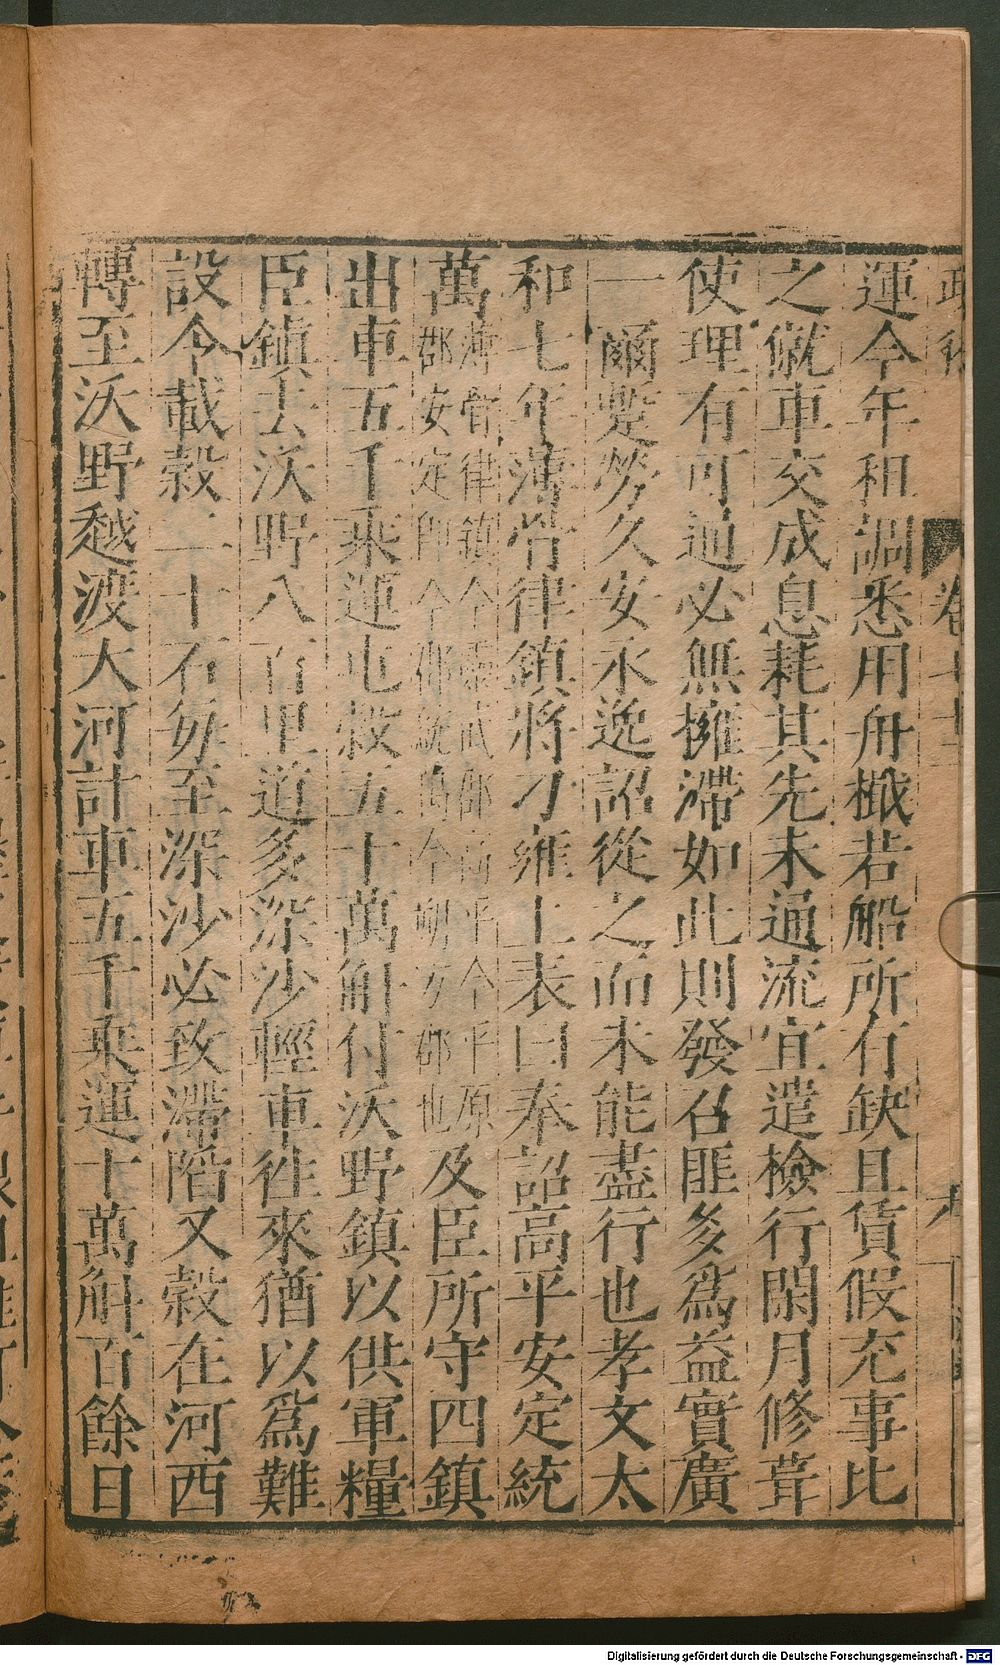 運今年和調悉用舟檝若船所有缺且賃假充事比
之僦車交成息耗其先未通流宜遣檢行閑月修葺
使理有可通必無擁滯如此則發召匪多為益實廣
一爾蹔勞久安永逸詔從之而未能盡行也孝文太
和七年薄骨律鎮將刁雍上表曰奉詔高平安定統
萬薄骨律鎮今靈武郡高平今平原
郡安定即今郡統萬今朔方郡也及臣所守四鎮
出車五千乘運屯穀五十萬斛付沃野鎮以供軍糧
臣鎮去沃野八百里道多深沙輕車往來猶以為難
設令載穀二十石每至深沙必致滯陷又穀在河西
轉至沃野越渡大河計車五千乘運十萬斛百餘日
Digitalisierung gefördert durch die Deutsche Forschungsgemeinschaft - DFG